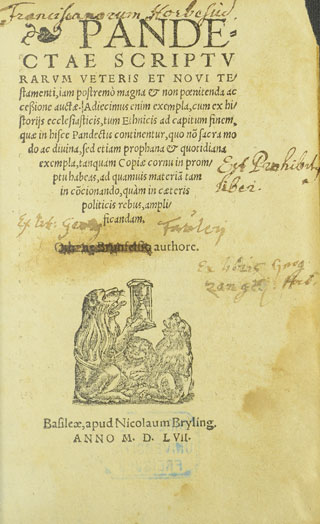 Franciscanorum Horbesiud
PANDE-
CTAE SCRIPTV
RARVM VETERIS ET NOVI TE/
stamenti, iam postremò magna & non pœnitenda ac
ceßione auctæ: Adiecimus enim exempla, cum ex hi/
storijs ecclesiasticis, tum Ethnicis ad capitum finem,
quæ in hisce Pandectis continentur, quo nō sacra mo
do ac diuina, sed etiam prophana & quotidiana
exempla, tanquam Copiæ cornu in prom/
ptu habeas, ad quamuis materiā tam
in cōcionando, quàm in cæteris
politicis rebus, ampli/
ficandam.
Est Prohibit
liber.
authore.
Basileæ, apud Nicolaum Bryling.
ANNO M. D. LVII.